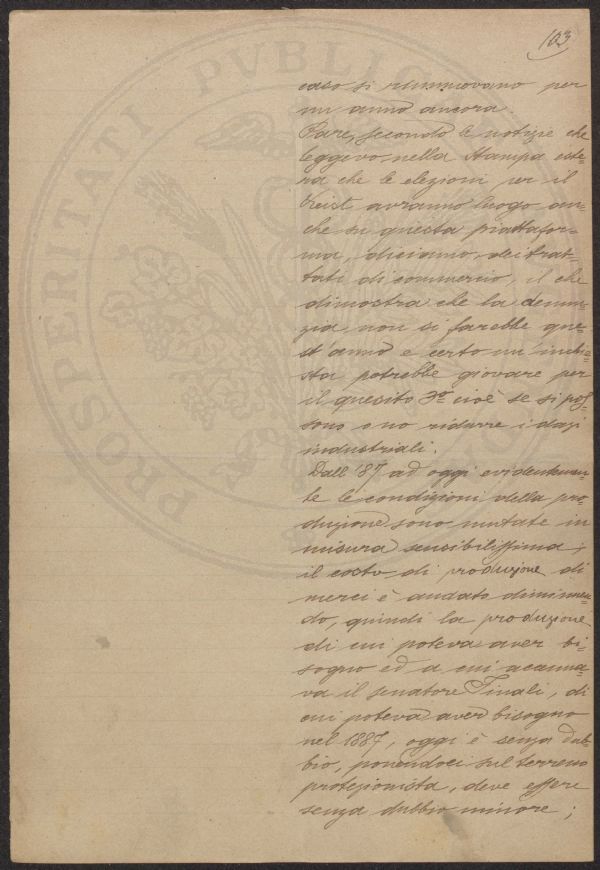 103
PROSPERITATI PVBLIC
caso si rinnovano per
un anno ancora.
Pare, secondo le notizie che
leggevo nella stampa este-
ra che le elezioni per il
avranno luogo an-
che su questa piattafor-
ma, diciamo, dei trat-
tati di commercio, il che
dimostra che la denun-
zia non si farebbe que-
st'anno e certo un'inchie-
sta potrebbe giovare per
il quesito 3º cioè se si pos-
sono o no ridurre i dazi
industriali.
Dall'87 ad oggi evidentemen-
te le condizioni della pro-
duzione sono mutate in
misura sensibilissima;
il costo di produzione di
merci è andato diminuen-
do, quindi la produzione
di cui poteva aver bi-
sogno ed a cui accenna-
va il senatore Finali, di
cui poteva aver bisogno
nel 1887, oggi è senza dub-
bio, ponendoci sul terreno
protezionista, deve essere
senza dubbio minore;